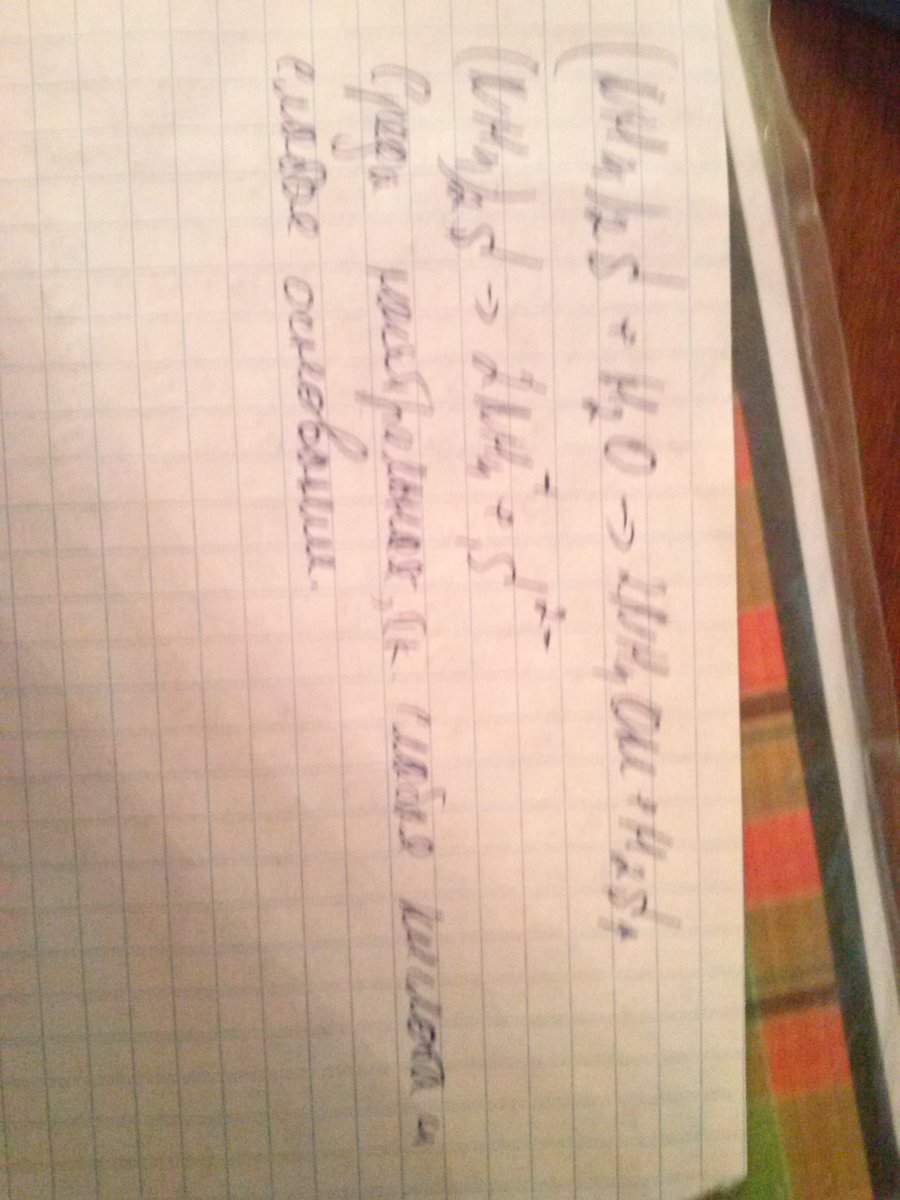 (NH4)2S + H2O → 2NH4OH + H2S↑
(NH4)2S → 2NH4⁺ + S²⁻
Среда нейтральная, т.к. слабая кислота и
слабое основание.